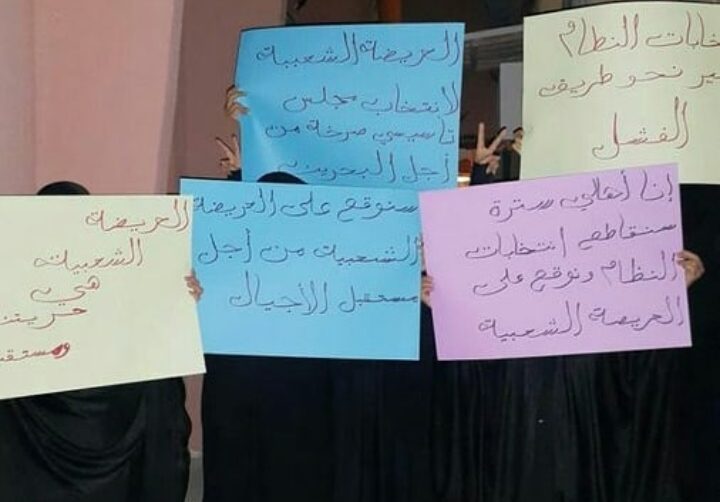 العريضة الشعبية
لانتخاب مجلس
تأسيسي صرخة من
أجل البحرين
النظام
نحو طريق
الفشل
العريضة
الشعبية
هي
سنوقع على العريضة
الشعبية من أجل
مستقبل الأجيال
إنا أهالي سترة
سنقاطع انتخابات
النظام ونوقع على
العريضة الشعبية